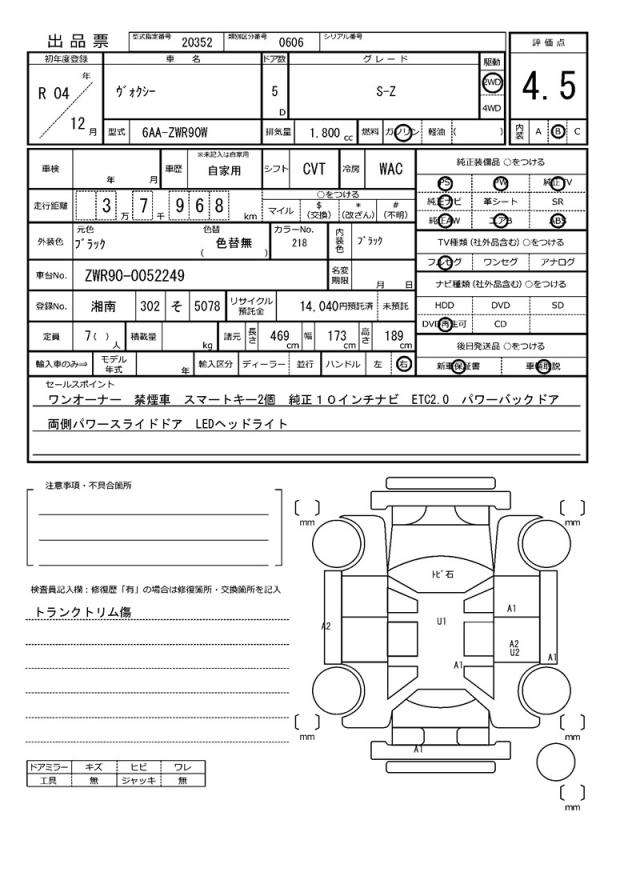 出品票 型式指定番号 20352 類別区分番号 0606 シリアル番号
評価点
4.5
内装 A B C
初年度登録 車名 ドア数 グレード 駆動
R 04 年 12 月
ヴォクシー 5 D S-Z 2WD 4WD
型式 6AA-ZWR90W 排気量 1,800 cc 燃料 ガソリン 軽油 ( )
車検 年 月 車歴 ※未記入は自家用 自家用 シフト CVT 冷房 WAC
走行距離 3 万 7 千 9 6 8 km
○をつける
マイル $ (交換) * (改ざん) # (不明)
外装色 元色 ブラック 色替 ( 色替無 ) カラーNo. 218 内装色 ブラック
車台No. ZWR90-0052249 名変期限 月 日
登録No. 湘南 302 そ 5078 リサイクル預託金 14,040円預託済 未預託
定員 7( ) 人 積載量 kg 諸元 長さ 469 cm 幅 173 cm 高さ 189 cm
輸入車のみ⇒ モデル年式 年 輸入区分 ディーラー 並行 ハンドル 左 右
純正装備品 ○をつける
PS PW 純正TV
純正ナビ 革シート SR
純正AW エアB ABS
TV種類 (社外品含む) ○をつける
フルセグ ワンセグ アナログ
ナビ種類 (社外品含む) ○をつける
HDD DVD SD
DVD再生可 CD
後日発送品 ○をつける
新車保証書 車輌取説
セールスポイント
ワンオーナー 禁煙車 スマートキー2個 純正１０インチナビ ETC2.0 パワーバックドア
両側パワースライドドア LEDヘッドライト
注意事項・不具合箇所
検査員記入欄：修復歴「有」の場合は修復箇所・交換箇所を記入
トランクトリム傷
ドアミラー キズ ヒビ ワレ
工具 無 ジャッキ 無
mm
mm
トビ石
A1
A2
U1
A2
U2
A1
A1
mm
mm
A1
mm